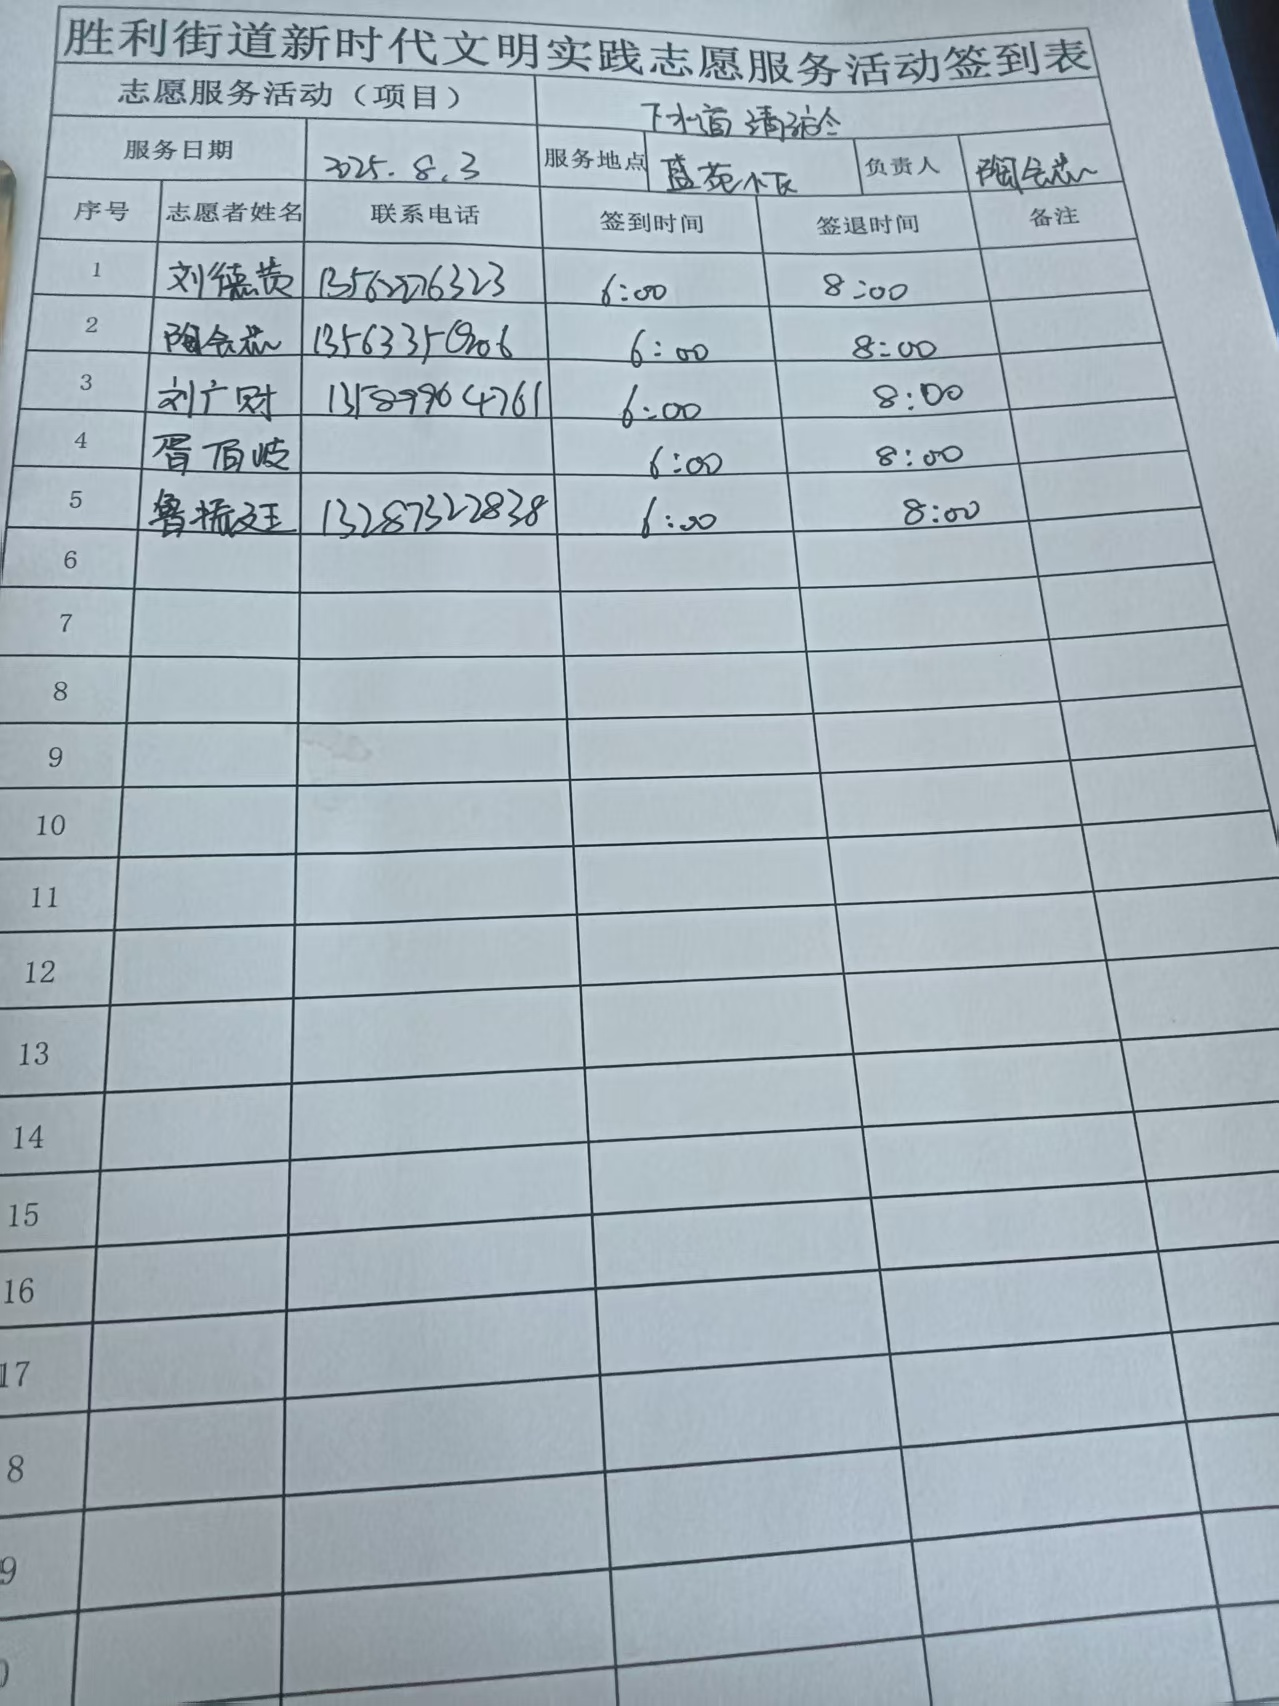 胜利街道新时代文明实践志愿服务活动签到表
志愿服务活动（项目） 下水道清淤
服务日期 2025.8.3 服务地点 蓝苑小区 负责人 陶会芯
序号 志愿者姓名 联系电话 签到时间 签退时间 备注
1 刘德贵 13562276323 6:00 8:00
2 陶会芯 6:00 8:00
3 刘广财 13589964761 6:00 8:00
4 6:00 8:00
5 鲁振廷 13287322838 6:00 8:00
6
7
8
9
10
11
12
13
14
15
16
17
8
9
0